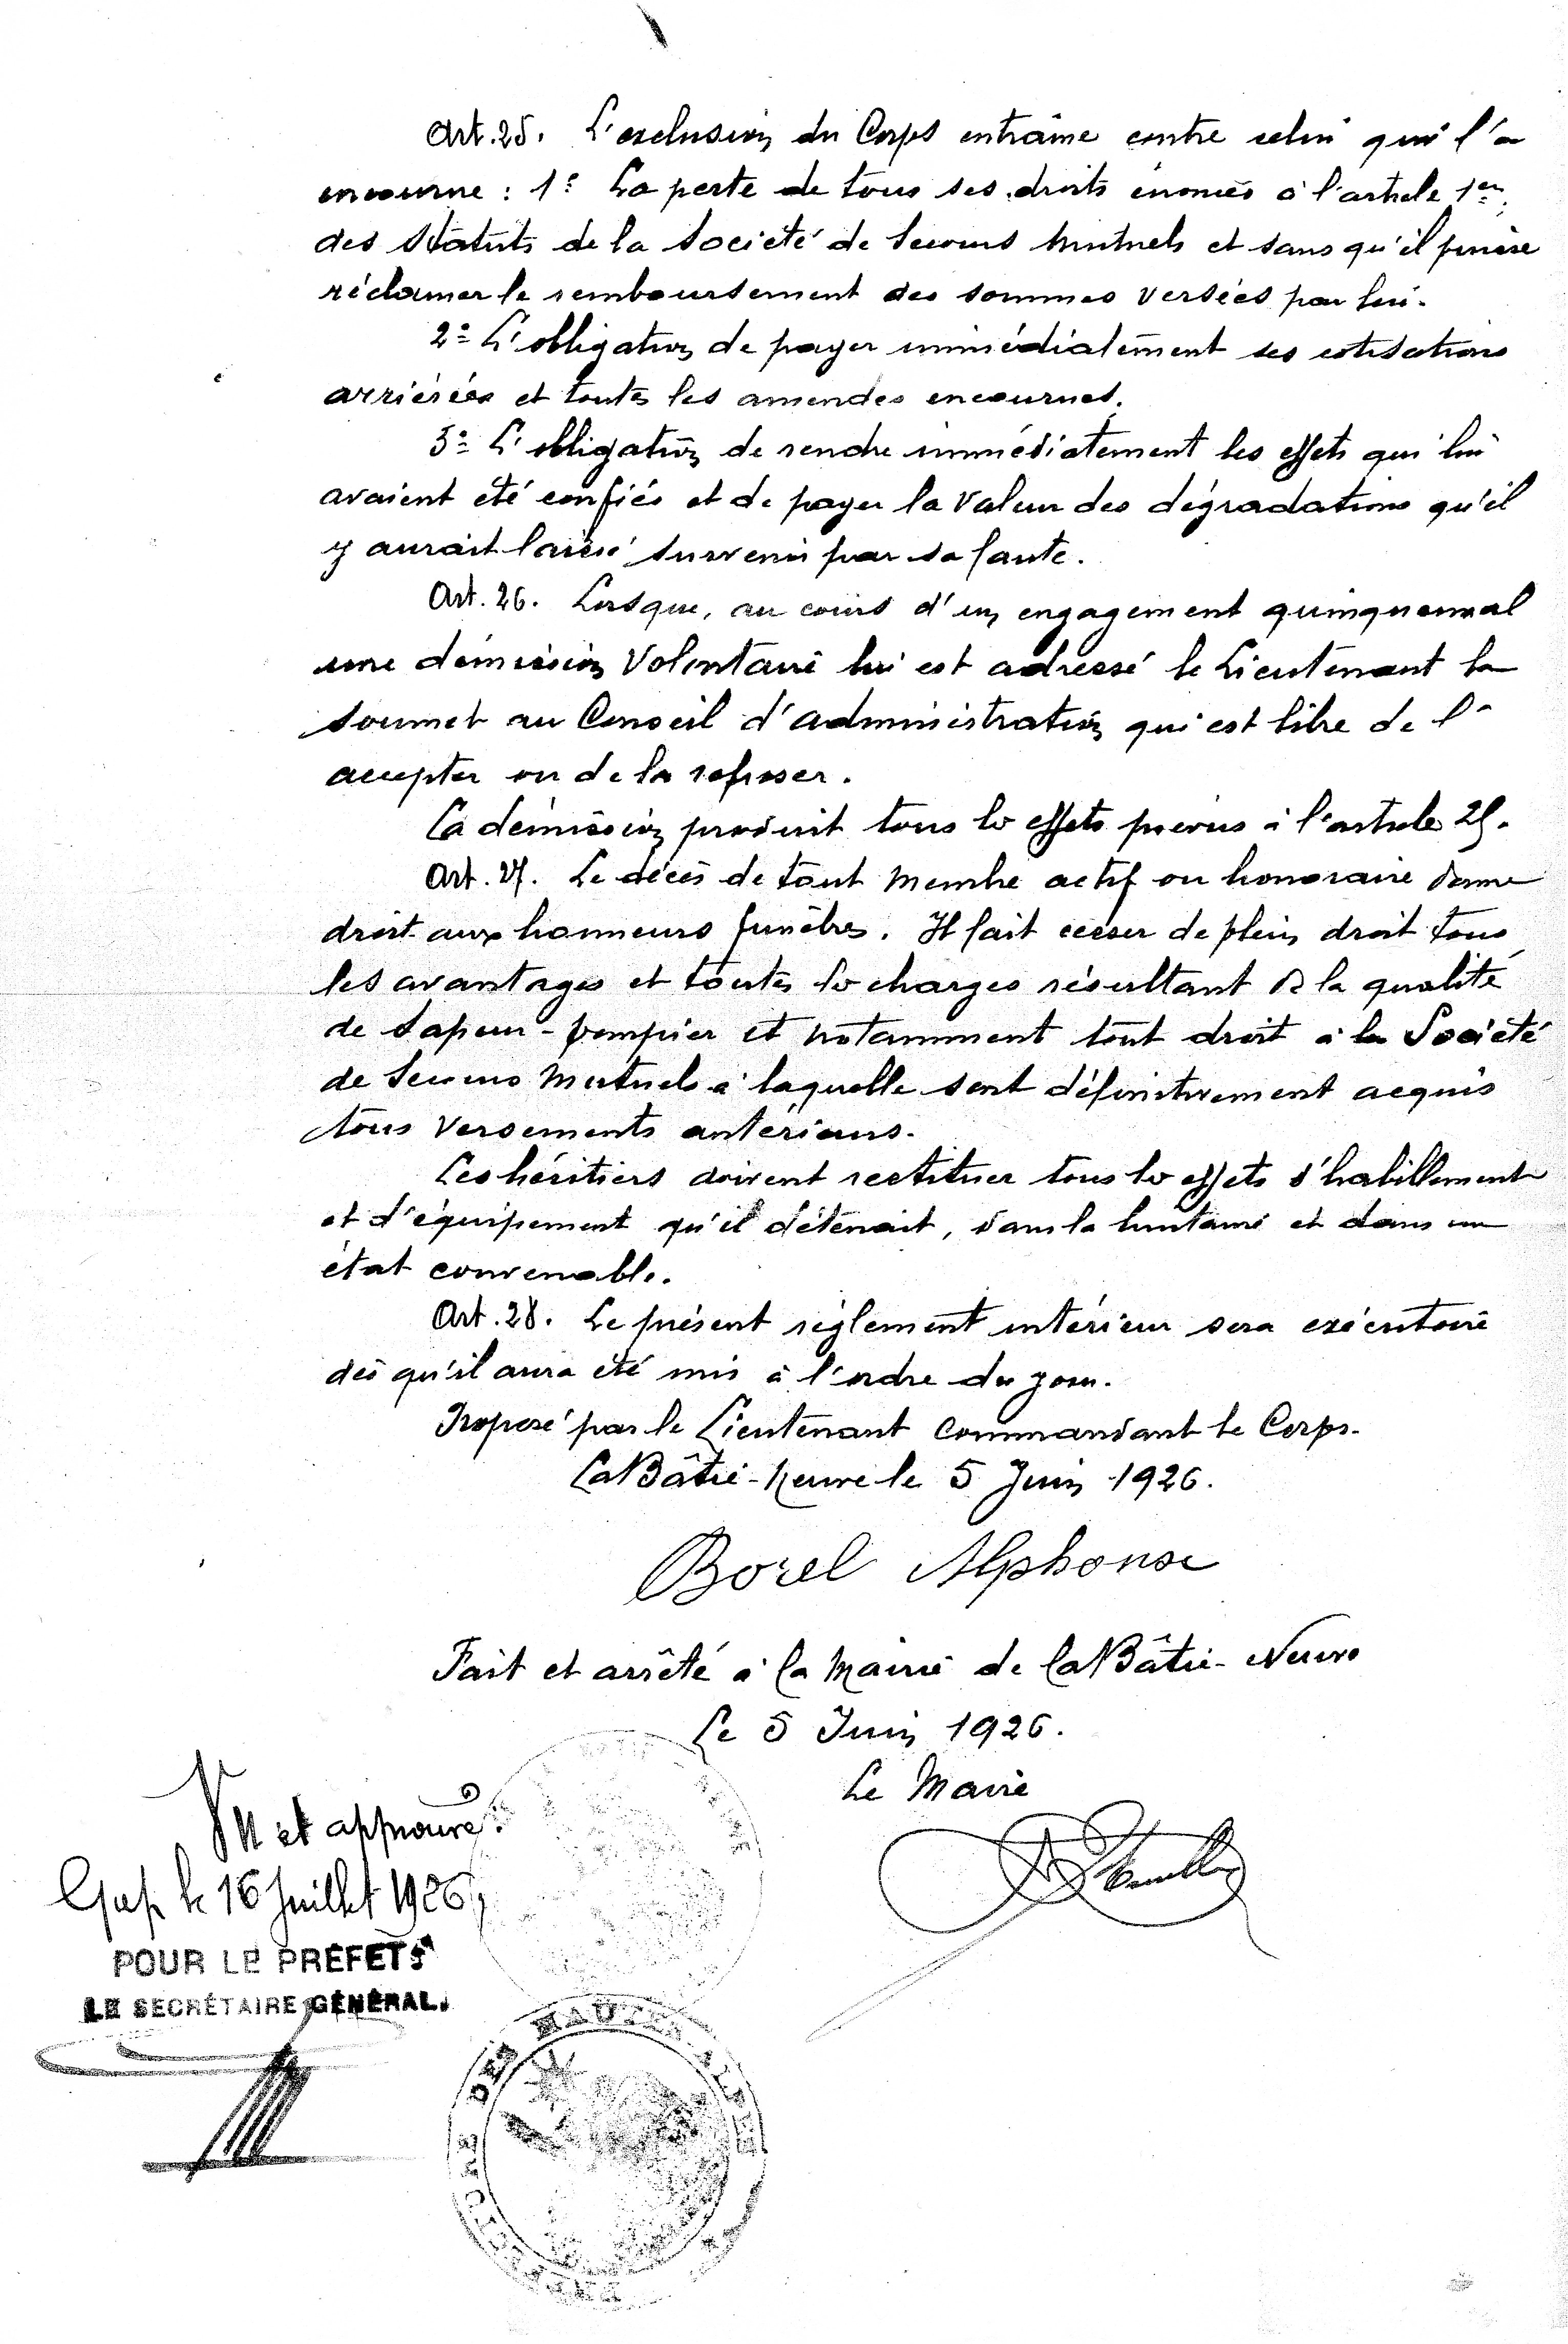 Art. 25. L'exclusion du Corps entraîne contre celui qui l'a
encourue : 1° La perte de tous ses droits énoncés à l'article 1er
des Statuts de la Société de Secours Mutuels et sans qu'il puisse
réclamer le remboursement des sommes versées par lui.
2° L'obligation de payer immédiatement ses cotisations
arriérées et toutes les amendes encourues.
3° L'obligation de rendre immédiatement les effets qui lui
avaient été confiés et de payer la valeur des dégradations qu'il
y aurait laissé survenir par sa faute.
Art. 26. Lorsque, au cours d'un engagement quinquennal
une démission volontaire lui est adressé le Lieutenant la
soumet au Conseil d'administration qui est libre de l'
accepter ou de la refuser.
La démission produit tous les effets prévus à l'article 25.
Art. 27. Le décès de tout membre actif ou honoraire donne
droit aux honneurs funèbres. Il fait cesser de plein droit tous
les avantages et toutes les charges résultant de la qualité
de sapeur-pompier et notamment tout droit à la Société
de Secours Mutuels à laquelle sont définitivement acquis
tous versements antérieurs.
Les héritiers doivent restituer tous les effets d'habillement
et d'équipement qu'il détenait, dans la huitaine et dans un
état convenable.
Art. 28. Le présent règlement intérieur sera exécutoire
dès qu'il aura été mis à l'ordre du jour.
Proposé par le Lieutenant Commandant le Corps.
La Bâtie-Neuve le 5 Juin 1926.
Borel Alphonse
Fait et arrêté à la Mairie de La Bâtie-Neuve
Le 5 Juin 1926.
Le Maire
Vu et approuvé :
Gap, le 16 Juillet 1926,
POUR LE PRÉFET :
LE SECRÉTAIRE GÉNÉRAL.
DES HAUTES ALPES